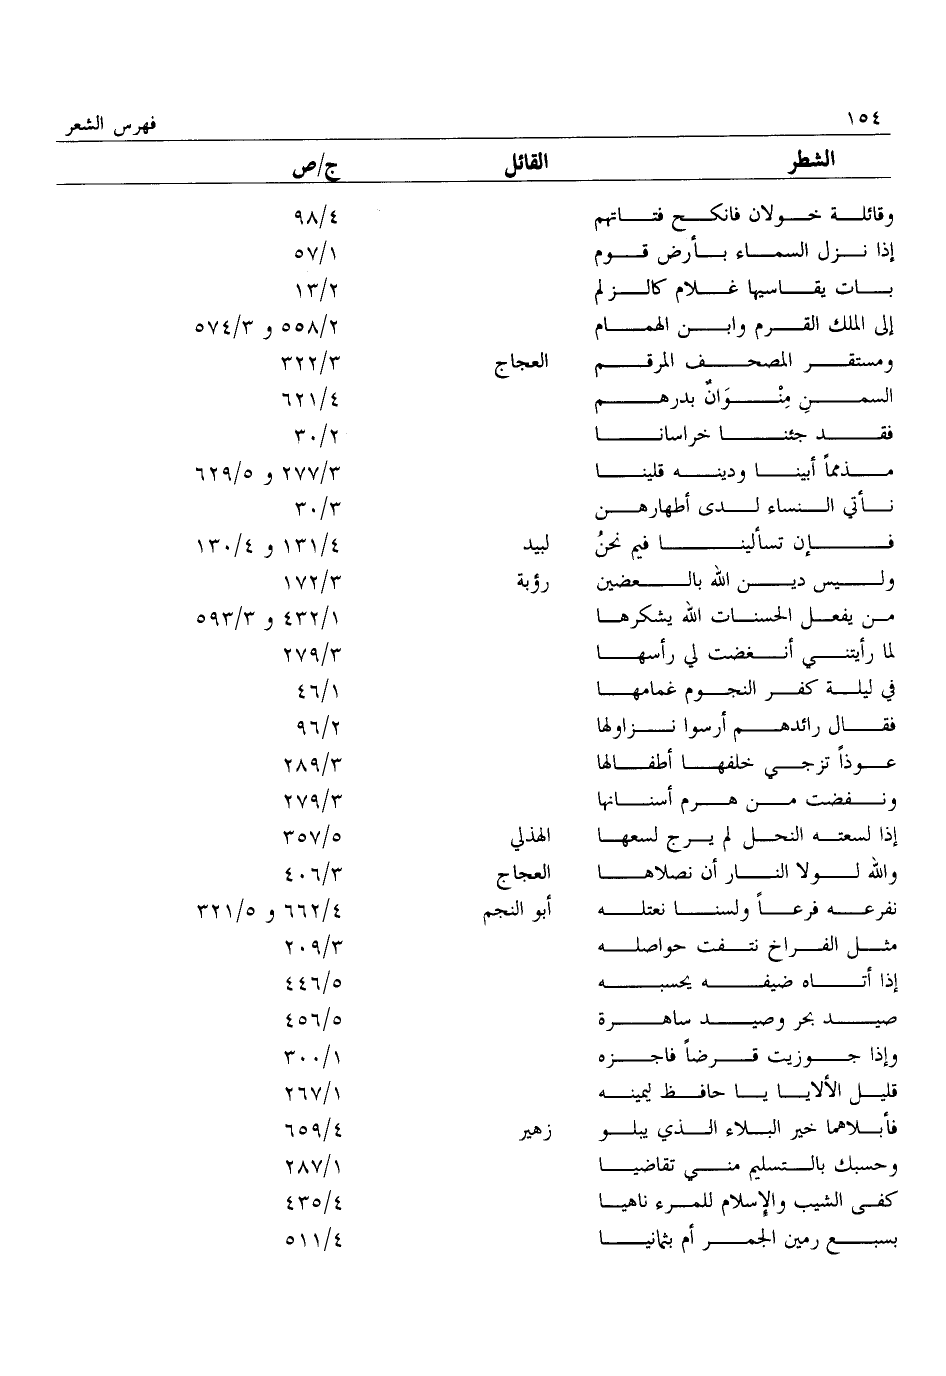 ١٥٤ فهرس الشعر
الشطر القائل ج/ص
وقائلة خولان فانكح فتاتهم ٩٨/٤
إذا نزل السماء بأرض قوم ٥٧/١
بات يقاسيها غلام كالزلم ١٣/٢
إلى الملك القرم وابن الهمام ٥٥٨/٢ و ٥٧٤/٣
ومستقر المصحف المرقم العجاج ٣٢٢/٣
السمنِ مِنْوَانٌ بدرهم ٦٢١/٤
فقد جئنا خراسانا ٣٠/٢
مذمماً أبينا ودينه قلينا ٢٧٧/٣ و ٦٢٩/٥
نأتي النساء لدى أطهارهن ٣٠/٣
فإن تسألينا فيم نحنُ لبيد ١٣١/٤ و ١٣٠/٤
وليس دين الله بالعضين رؤبة ١٧٢/٣
من يفعل الحسنات الله يشكرها ٤٣٢/١ و ٥٩٣/٣
لما رأيتني أنغضت لي رأسها ٢٧٩/٣
في ليلة كفر النجوم غمامها ٤٦/١
فقال رائدهم أرسوا نزاولها ٩٦/٢
عوذاً تزجي خلفها أطفالها ٢٨٩/٣
ونغضت من هرم أسنانها ٢٧٩/٣
إذا لسعته النحل لم يرج لسعها الهذلي ٣٥٧/٥
والله لولا النار أن نصلاها العجاج ٤٠٦/٣
نفرعه فرعاً ولسنا نعتله أبو النجم ٦٦٢/٤ و ٣٢١/٥
مثل الفراخ نتفت حواصله ٢٠٩/٣
إذا أتاه ضيفه يحسبه ٤٤٦/٥
صيد بحر وصيد ساهرة ٤٥٦/٥
وإذا جوزيت قرضاً فاجزه ٣٠٠/١
قليل الألايا يا حافظ ليمينه ٢٦٧/١
فأبلاهما خير البلاء الذي يبلو زهير ٦٥٩/٤
وحسبك بالتسليم مني تقاضيا ٢٨٧/١
كفى الشيب والإسلام للمرء ناهيا ٤٣٥/٤
بسبع رمين الجمر أم بثمانيا ٥١١/٤